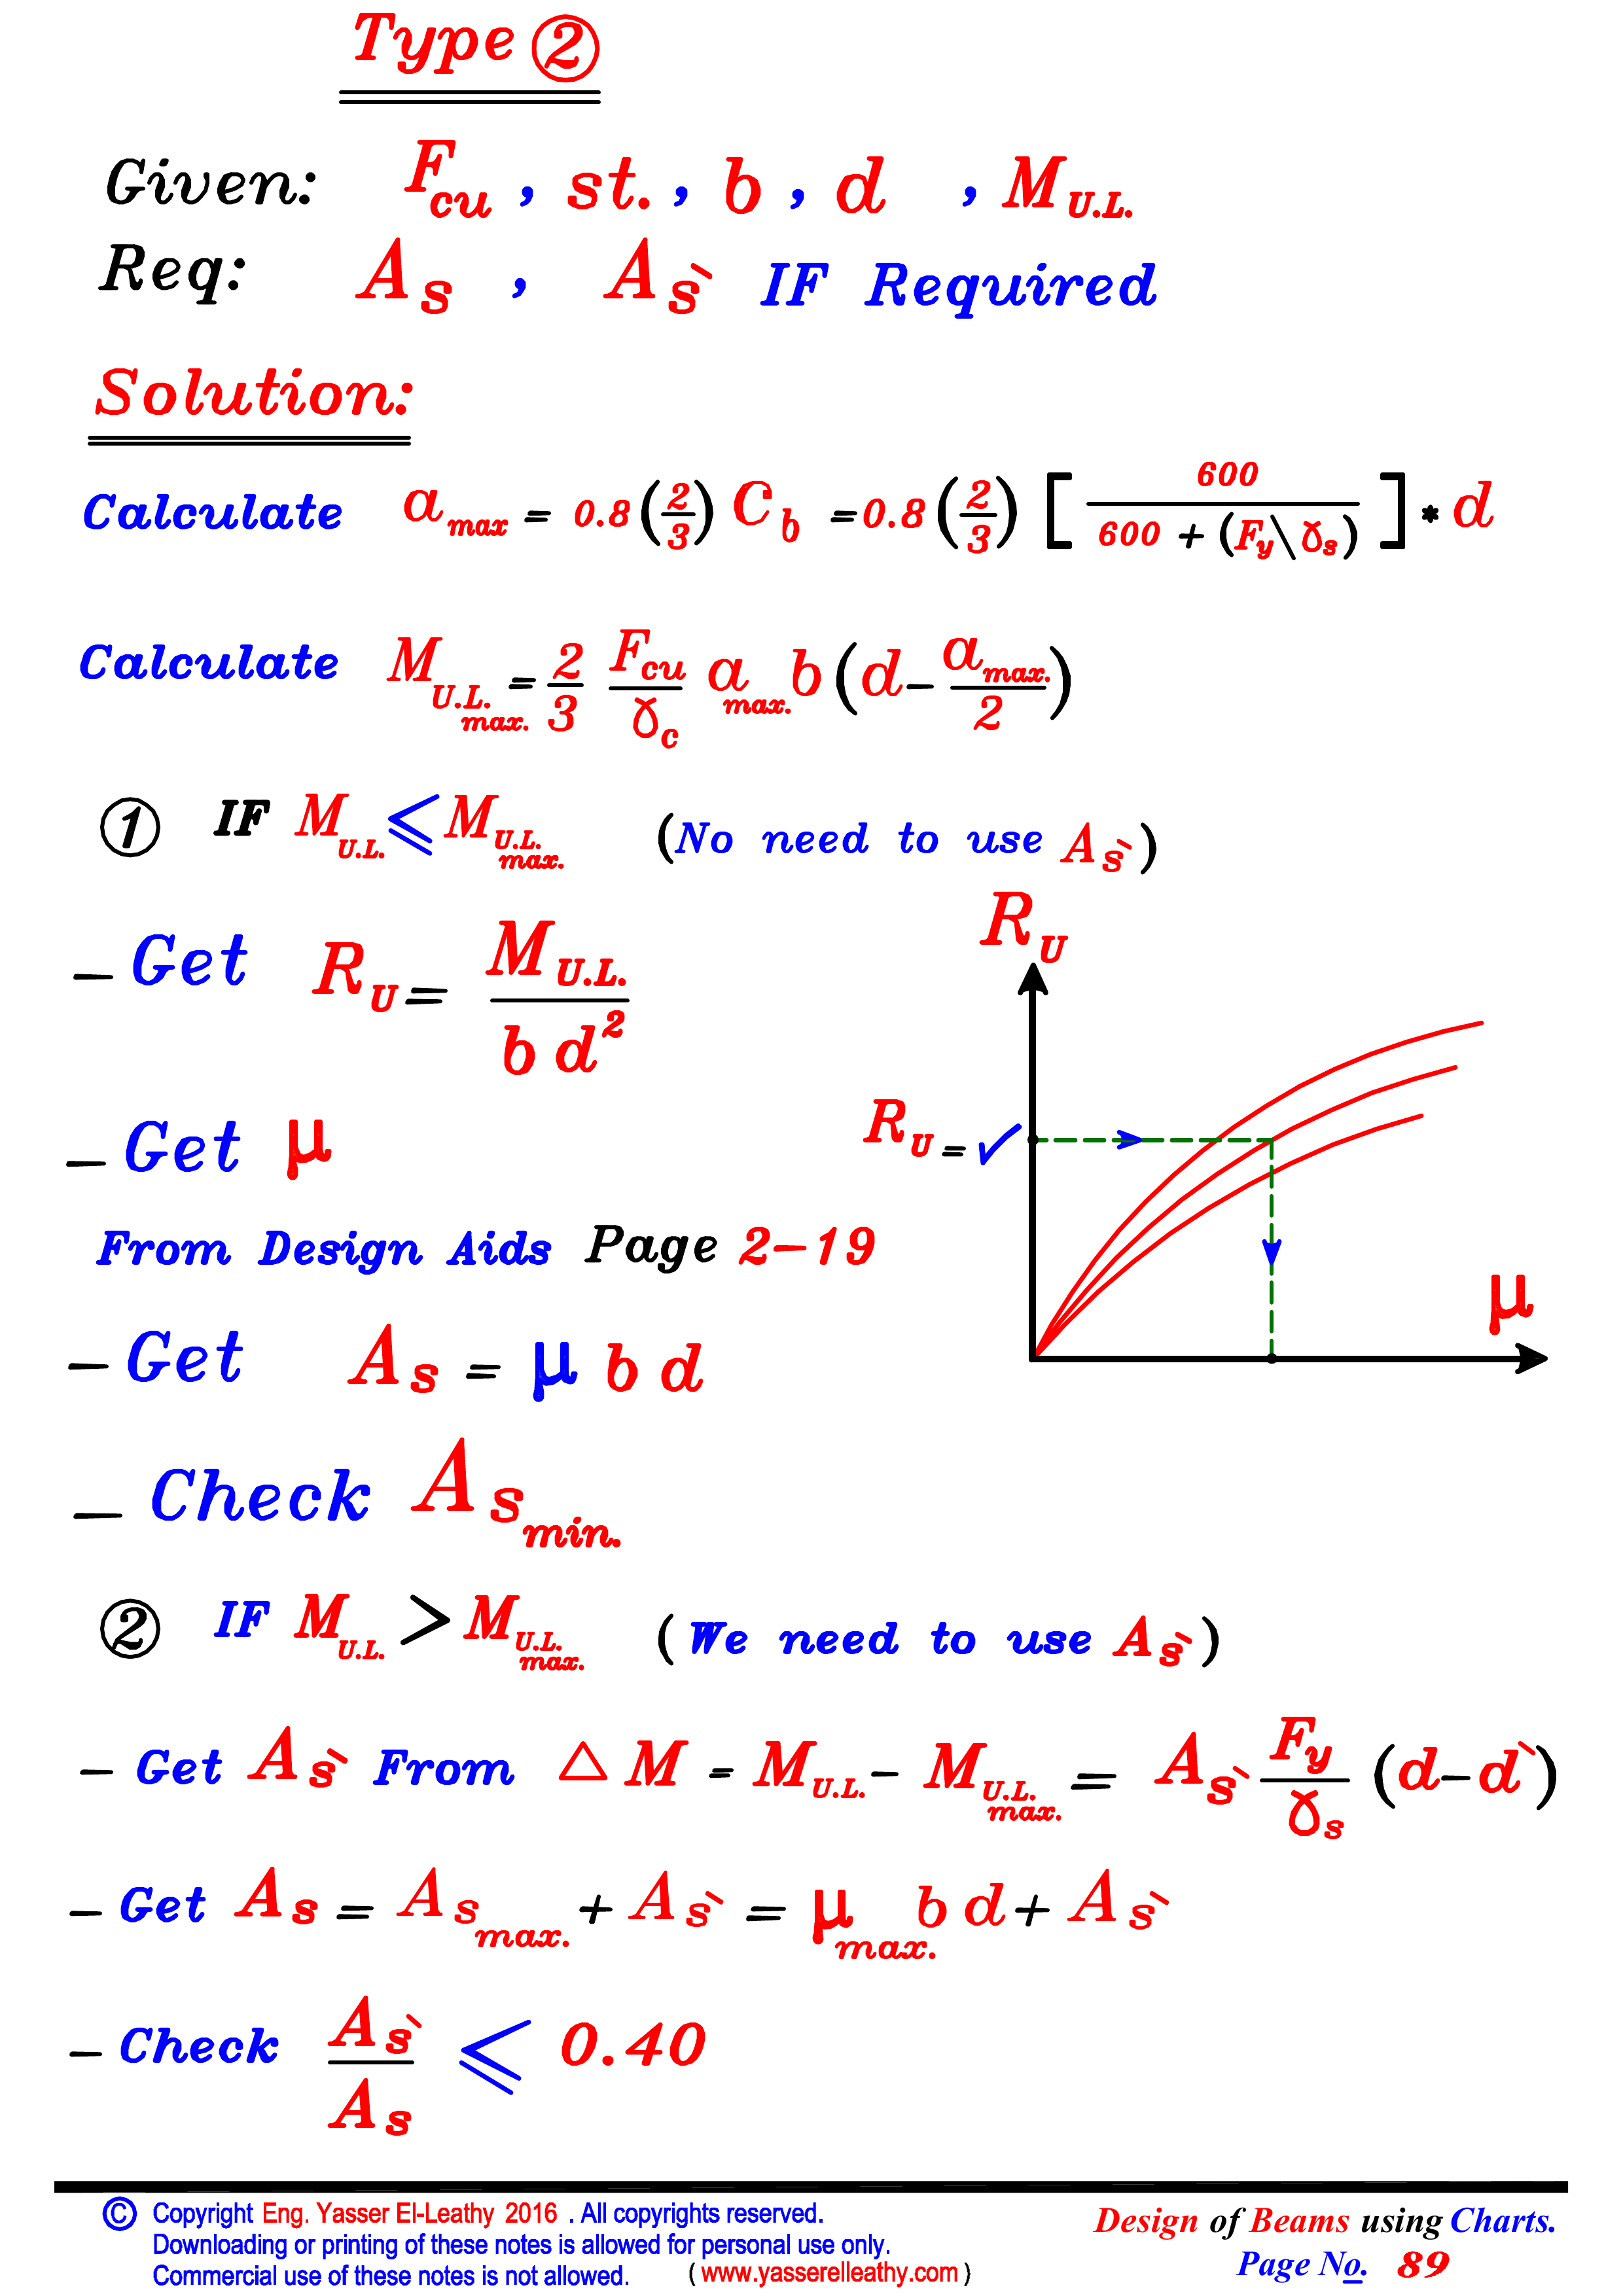 Type ②
Given: Fcu , st. , b , d , M U.L.
Req: As , As` IF Required
Solution:
Calculate a max = 0.8 (2/3) Cb = 0.8 (2/3) [ 600 / 600 + (Fy\γs) ] * d
Calculate M U.L. max. = 2/3 Fcu/γc a max. b (d - a max./2)
① IF M U.L. ≤ M U.L. max. (No need to use As`)
- Get RU = M U.L. / b d²
RU
- Get μ
RU = ✓
From Design Aids Page 2-19
μ
- Get As = μ b d
- Check As min.
② IF M U.L. > M U.L. max. (We need to use As`)
- Get As` From △M = M U.L. - M U.L. max. = As` Fy/γs (d-d`)
- Get As = As max. + As` = μ max. b d + As`
- Check As`/As ≤ 0.40
© Copyright Eng. Yasser El-Leathy 2016 . All copyrights reserved.
Downloading or printing of these notes is allowed for personal use only.
Commercial use of these notes is not allowed. ( www.yasserelleathy.com )
Design of Beams using Charts.
Page No. 89